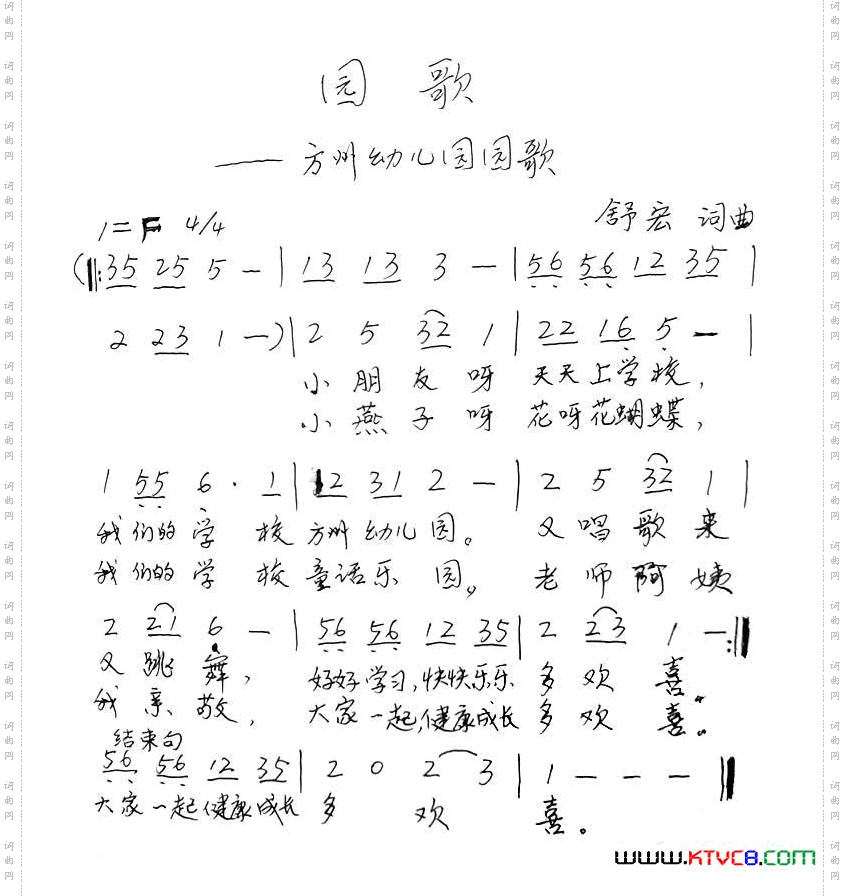 园 歌
—— 方州幼儿园园歌
1=F 4/4
舒宏 词曲
(‖:35 25 5 —| 13 13 3 —|56 56 12 35|
2 23 1 —)|2 5 32 1|22 16 5 —|
小朋友呀 天天上学校，
小燕子呀 花呀花蝴蝶，
1 55 6· 1|12 31 2 —|2 5 32 1|
我们的学校方州幼儿园。 又唱歌来
我们的学校童话乐园。 老师阿姨
2 21 6 —|56 56 12 35|2 23 1 —:‖
又跳舞， 好好学习，快快乐乐多欢喜。
我亲敬， 大家一起，健康成长多欢喜。
结束句
56 56 12 35|2 0 2 3|1 — — —‖
大家一起健康成长多 欢 喜。
WWW.KTVC8.COM
词曲网